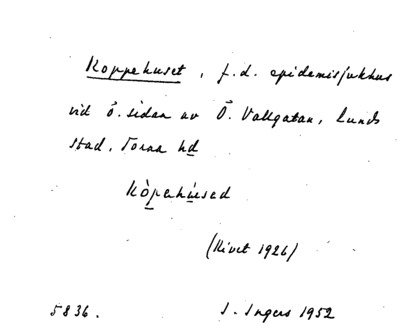 Koppehuset, f.d. epidemisjukhus
vid ö. sidan av Ö. Vallgatan, Lunds
stad, Torna hd
Kòpehùsed
(Rivet 1926)
5836. I. Ingers 1952